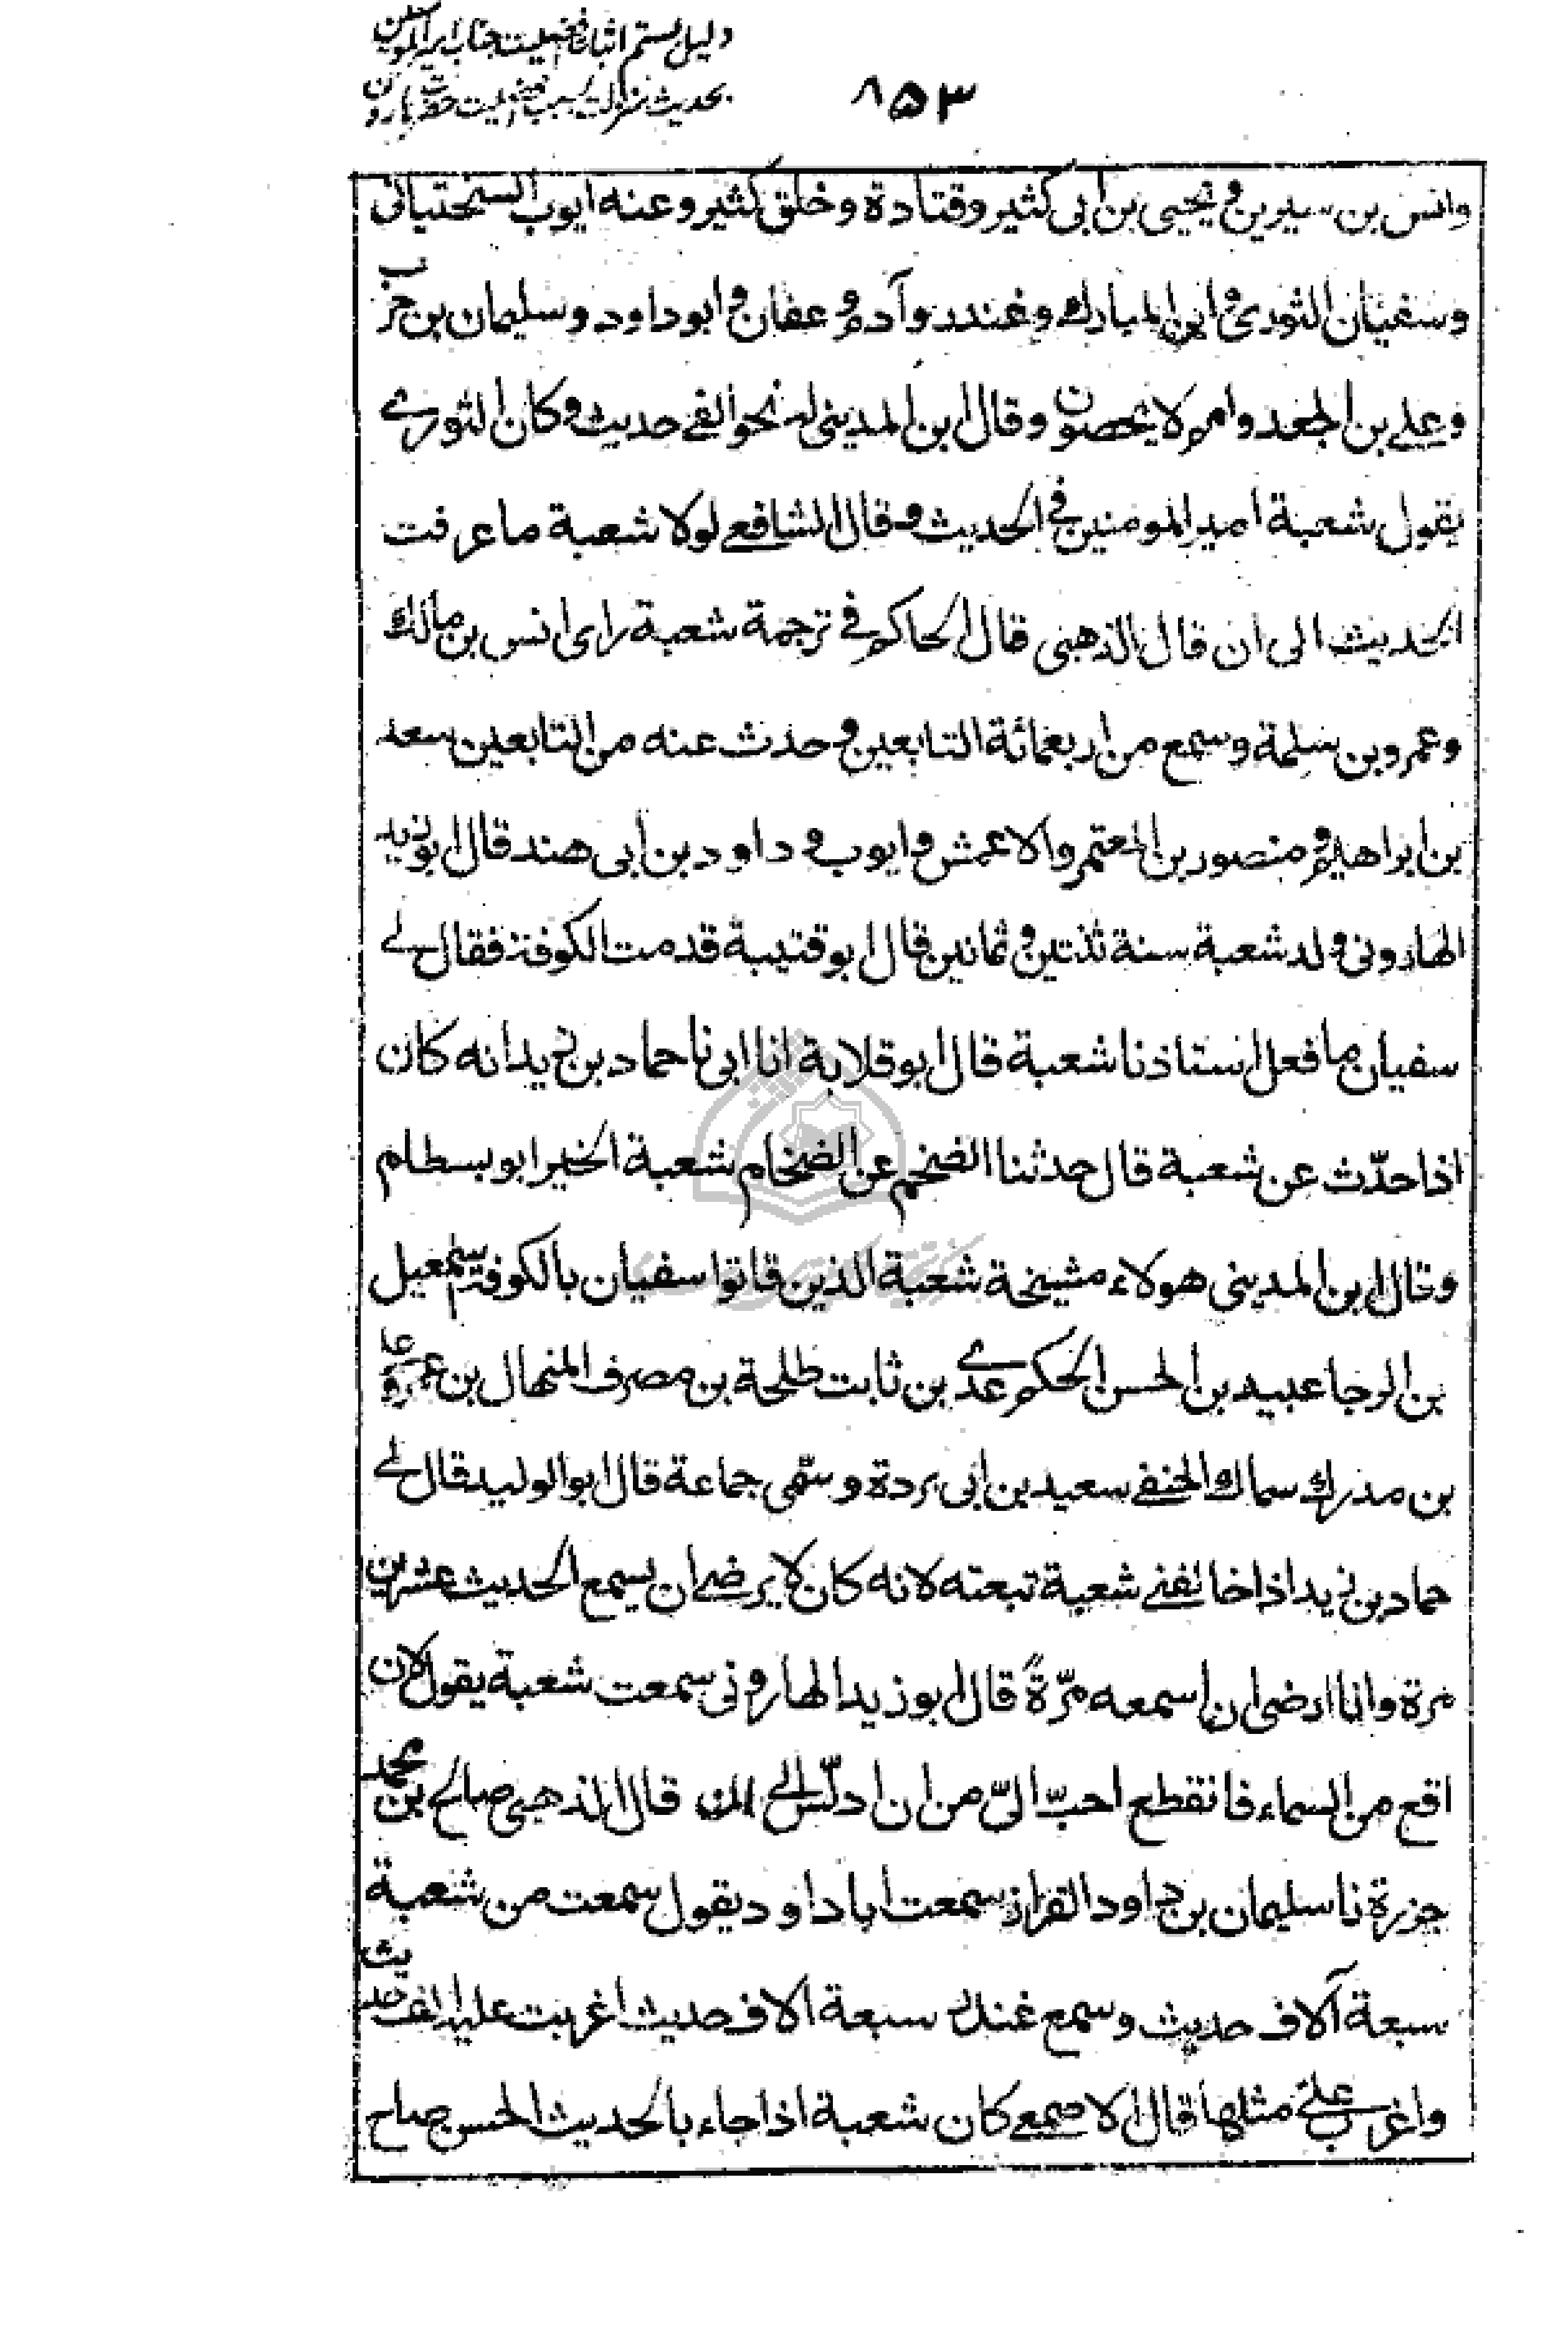 دلیل بستم اثبات افضلیت جناب امیرالمومنین
بحدیث منزلت بسبب افضلیت حضرت هارون
۸۵۳
وانس بن سیرین و یحیی بن ابی کثیر و قتادة و خلق کثیر و عنه ایوب السختیانی
و سفیان الثوری و ابن المبارک و غندر و آدم و عفان و ابو داود و سلیمان بن حرب
و علی بن الجعد و امم لا یحصون و قال ابن المدینی له نحو الفی حدیث و کان الثوری
یقول شعبة امیر المومنین فی الحدیث و قال الشافعی لولا شعبة ما عرفت
الحدیث الی ان قال الذهبی قال الحاکم فی ترجمة شعبة رای انس بن مالک
و عمرو بن سلمة و سمع من اربعمائة التابعین و حدث عنه من التابعین سعد
بن ابراهیم و منصور بن المعتمر و الاعمش و ایوب و داود بن ابی هند قال ابو زید
الهارونی ولد شعبة سنة ثنتین و ثمانین قال ابو قتیبة قدمت الکوفة فقال لی
سفیان ما فعل استاذنا شعبة قال ابو قلابة انا ابی نا حماد بن زید انه کان
اذا حدّث عن شعبة قال حدثنا الضخم عن الضخام شعبة الخیر ابو بسطام
و قال ابن المدینی هولاء مشیخة شعبة الذین فاتوا سفیان بالکوفة اسمعیل
بن الرجا عبید بن الحسن الحکم عدی بن ثابت طلحة بن مصرف المنهال بن عمرو علی
بن مدرک سماک الحنفی سعید بن ابی بردة و سمّی جماعة قال ابو الولید قال لی
حماد بن زید اذا خالفنی شعبة تبعته لانه کان لا یرضی ان یسمع الحدیث عشرین
مرة و انا ارضی ان اسمعه مرّةً قال ابو زید الهارونی سمعت شعبة یقول لان
اقع من السماء فانقطع احبّ الیّ من ان ادلّس الخ قال الذهبی صالح بن محمد
جزرة نا سلیمان بن داود القزاز سمعت ابا داود یقول سمعت من شعبة
سبعة آلاف حدیث و سمع غندر سبعة الاف حدیث اغربت علیه الف حدیث
و اغرب علی مثلها قال الاصمعی کان شعبة اذا جاء بالحدیث الحسن صاح